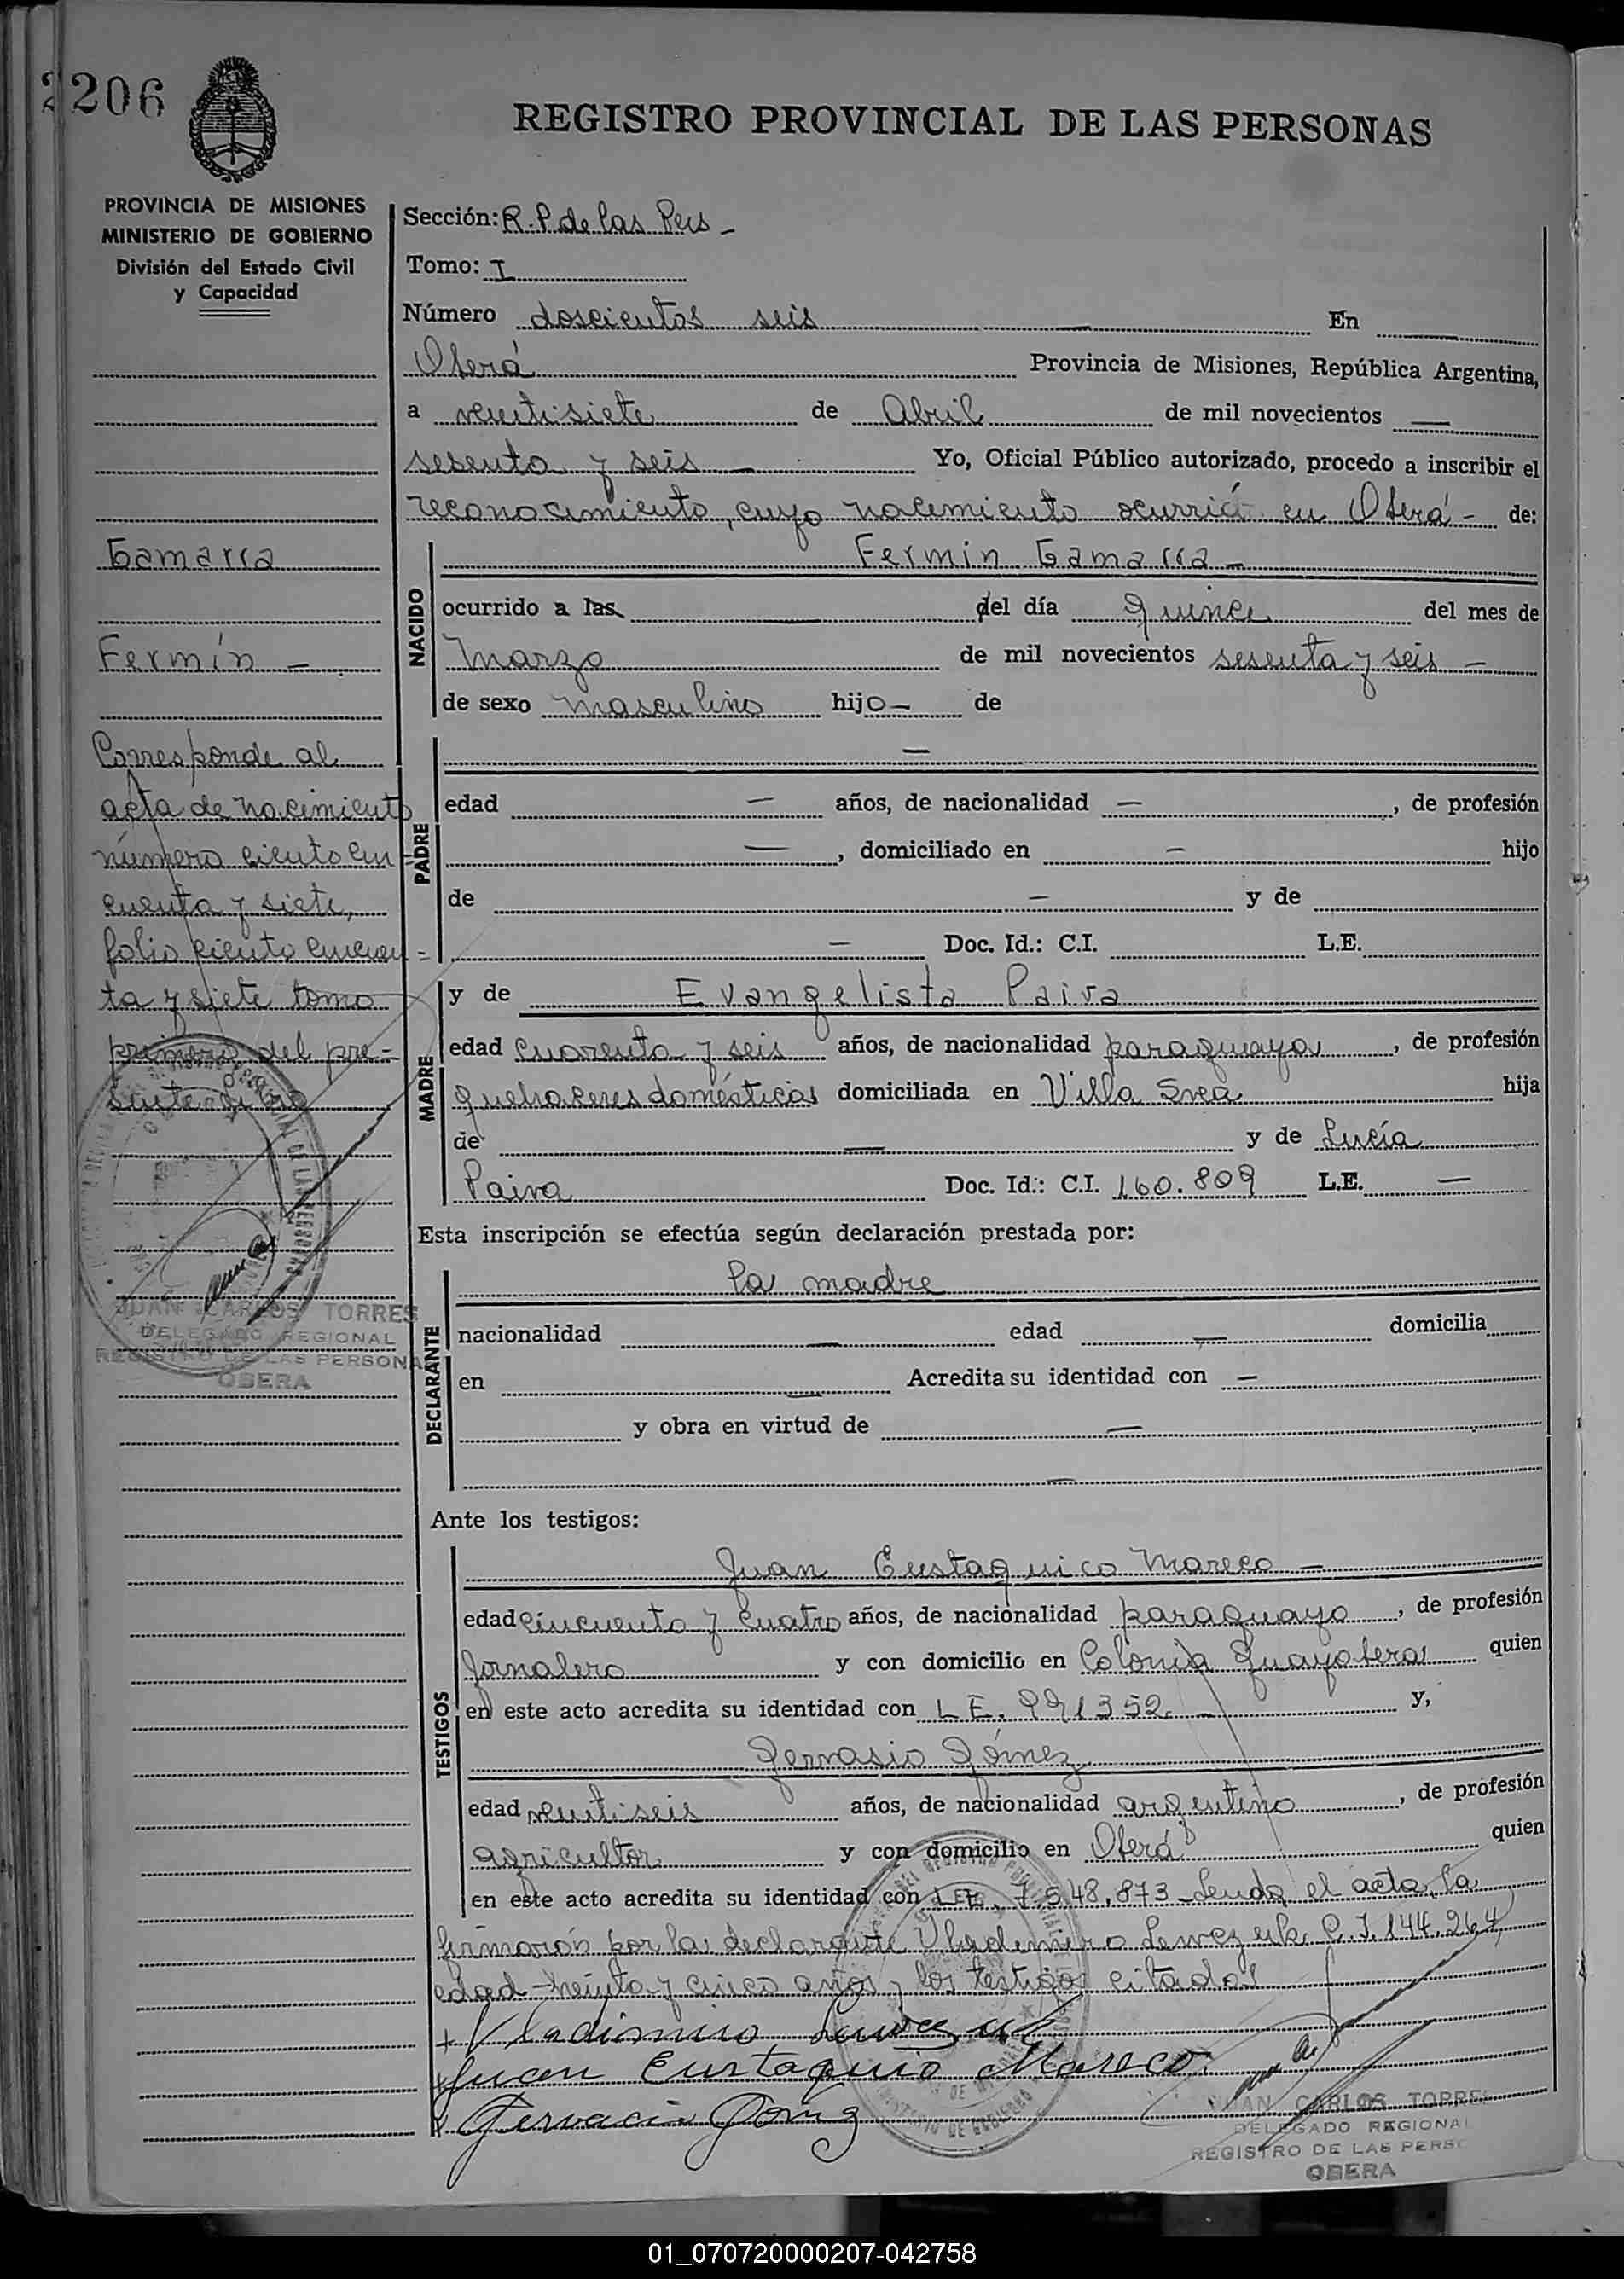 2206
REGISTRO PROVINCIAL DE LAS PERSONAS
PROVINCIA DE MISIONES
MINISTERIO DE GOBIERNO
División del Estado Civil
y Capacidad
Gamarra
Fermín -
Corresponde al
acta de nacimiento
número ciento cin-
cuenta y siete,
folio ciento cincuen=
ta y siete tomo
primero del pre-
sente libro
JUAN CARLOS TORRES
DELEGADO REGIONAL
REGISTRO DE LAS PERSONA
OBERA
Sección: R.P. de las Pers -
Tomo: I
Número doscientos seis — En —
Oberá Provincia de Misiones, República Argentina,
a veintisiete de Abril de mil novecientos —
sesenta y seis — Yo, Oficial Público autorizado, procedo a inscribir el
reconocimiento, cuyo nacimiento ocurrió en Oberá - de:
NACIDO
Fermín Gamarra -
ocurrido a las — del día quince del mes de
Marzo de mil novecientos sesenta y seis -
de sexo masculino hijo - de
PADRE
—
edad — años, de nacionalidad —, de profesión
—, domiciliado en — hijo
de — y de
— Doc. Id.: C.I. L.E.
MADRE
y de Evangelista Paiva
edad cuarenta y seis años, de nacionalidad paraguaya, de profesión
quehaceres domésticos domiciliada en Villa Svea hija
de — y de Lucía
Paiva Doc. Id.: C.I. 160.809 L.E. —
Esta inscripción se efectúa según declaración prestada por:
DECLARANTE
la madre
nacionalidad — edad — domicilia
en — Acredita su identidad con —
y obra en virtud de —
—
Ante los testigos:
TESTIGOS
Juan Eustaquico Mareco -
edad cincuenta y cuatro años, de nacionalidad paraguayo, de profesión
Jornalero y con domicilio en Colonia Guayabera quien
en este acto acredita su identidad con L E. 991352 - y,
Gervasio Gómez
edad veintiseis años, de nacionalidad argentino, de profesión
agricultor y con domicilio en Oberá quien
en este acto acredita su identidad con L.E. 7.548.873 - Leída el acta, la
firmarón por la declarante Vladimiro C.I. 144.264,
edad treinta y cinco años y los testigos citados
Vladimiro
Juan Eustaquio Mareco
Gervacio Gomez
JUAN CARLOS TORRE
DELEGADO REGIONAL
REGISTRO DE LAS PERSO
OBERA
01_070720000207-042758